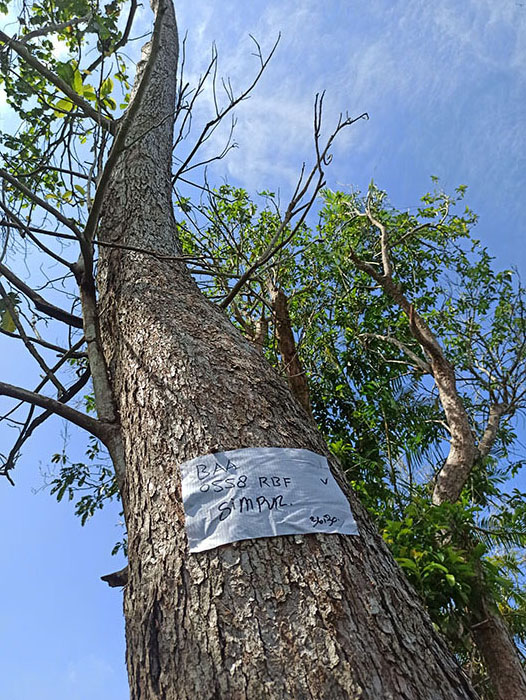 BAA
0558 RBF
SIMPUR.